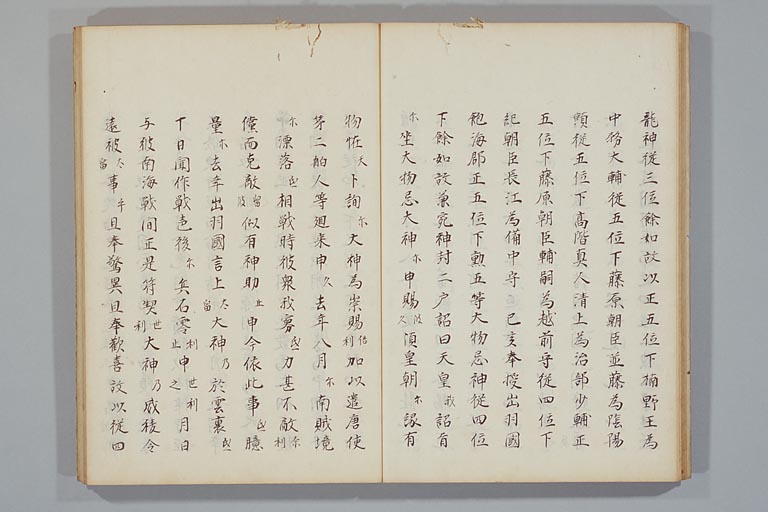 龍神従三位餘如故以正五位下楠野王為
中務大輔従五位下藤原朝臣並藤為陰陽
頭従五位下高階真人清上為治部少輔正
五位下藤原朝臣輔嗣為越前守従四位下
記朝臣長江為備中守己亥奉授出羽國
飽海郡正五位下勲五等大物忌神従四位
下餘如故兼宛神封二户詔曰天皇我詔旨
尓坐大物忌大神尓申賜波久須皇朝尓縁有
物恠天卜詢尓大神為崇賜倍利加以遣唐使
苐二舶人等廻来申久去年八月尓南賊境
尓漂落弖相戦時彼衆我寡弖力甚不敵奈利
儻而克敵留波似有神助止申今依此事弖臆
量尓去年出羽國言上尽留大神乃於雲裏弖
下日聞作戦㐌後尓兵石零利世利止申之月日
与彼南海戦间正是符契世利大神乃威稜令
遠被尽留事乎且奉驚異且奉歡喜故以従四